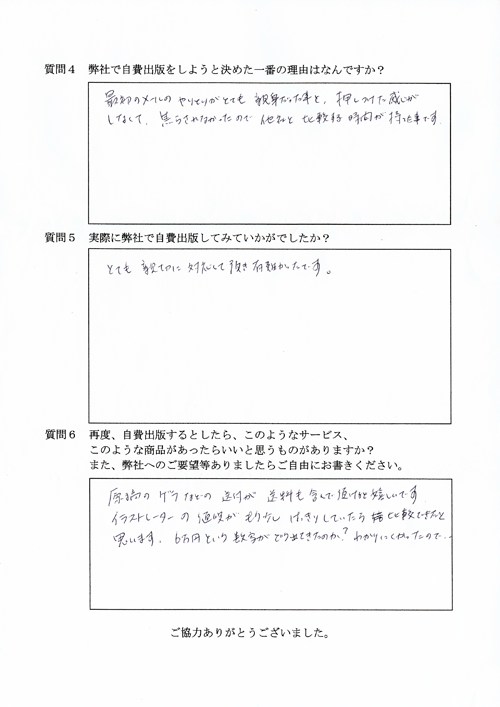 質問4 弊社で自費出版をしようと決めた一番の理由はなんですか?
最初のメールのやりとりがとても親身だった事と、押しつけた感じが
しなくて、焦らされなかったので 他社と比較する時間が持てた事です。
質問5 実際に弊社で自費出版してみていかがでしたか?
とても親切に対応して頂き有難かったです。
質問6 再度、自費出版するとしたら、このようなサービス、
このような商品があったらいいと思うものがありますか?
また、弊社へのご要望等ありましたらご自由にお書きください。
原稿のゲラなどの送付が送料も含んで頂けると嬉しいです
イラストレーターの値段がもう少しはっきりしていたら 比較できたと
思います。6万円という数字がどう出てきたのか?わかりにくかったので…
ご協力ありがとうございました。